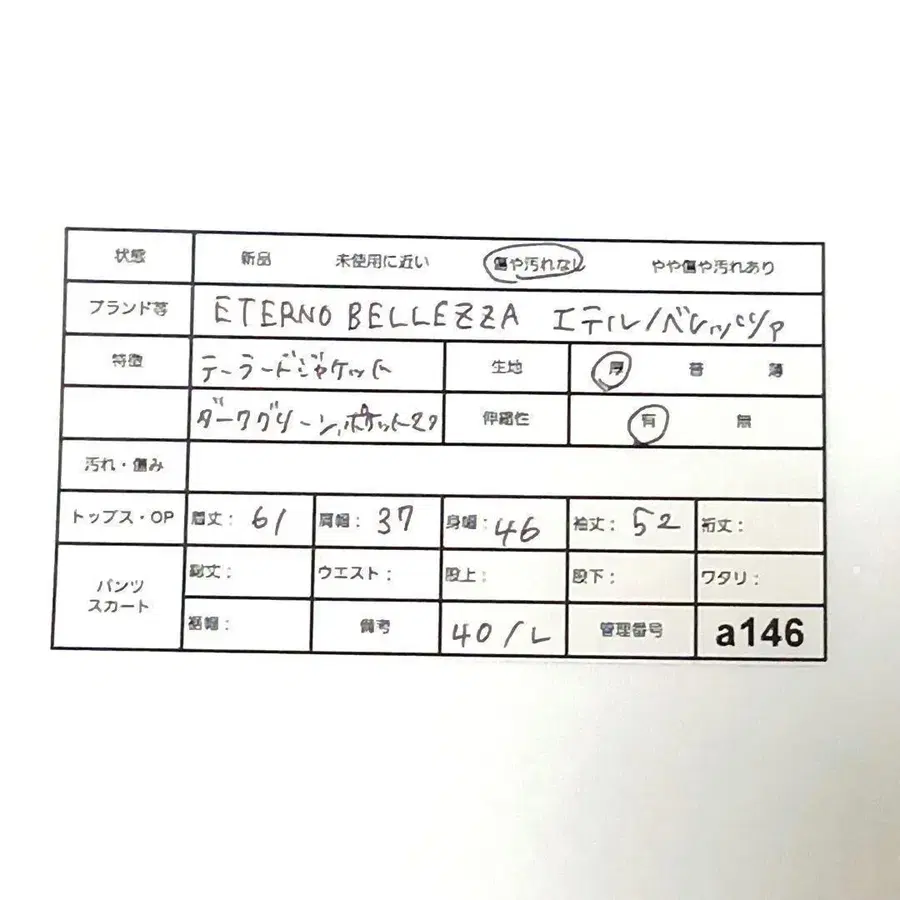 状態 新品 未使用に近い 傷や汚れなし やや傷や汚れあり
ブランド等 ETERNO BELLEZZA エテルノベレッツァ
特徴 テーラードジャケット 生地 厚 普 薄
ダークグリーン、ポケット2つ 伸縮性 有 無
汚れ・傷み
トップス・OP 着丈: 61 肩幅: 37 身幅: 46 袖丈: 52 裄丈:
パンツ スカート 総丈: ウエスト: 股上: 股下: ワタリ:
裾幅: 備考 40/L 管理番号 a146